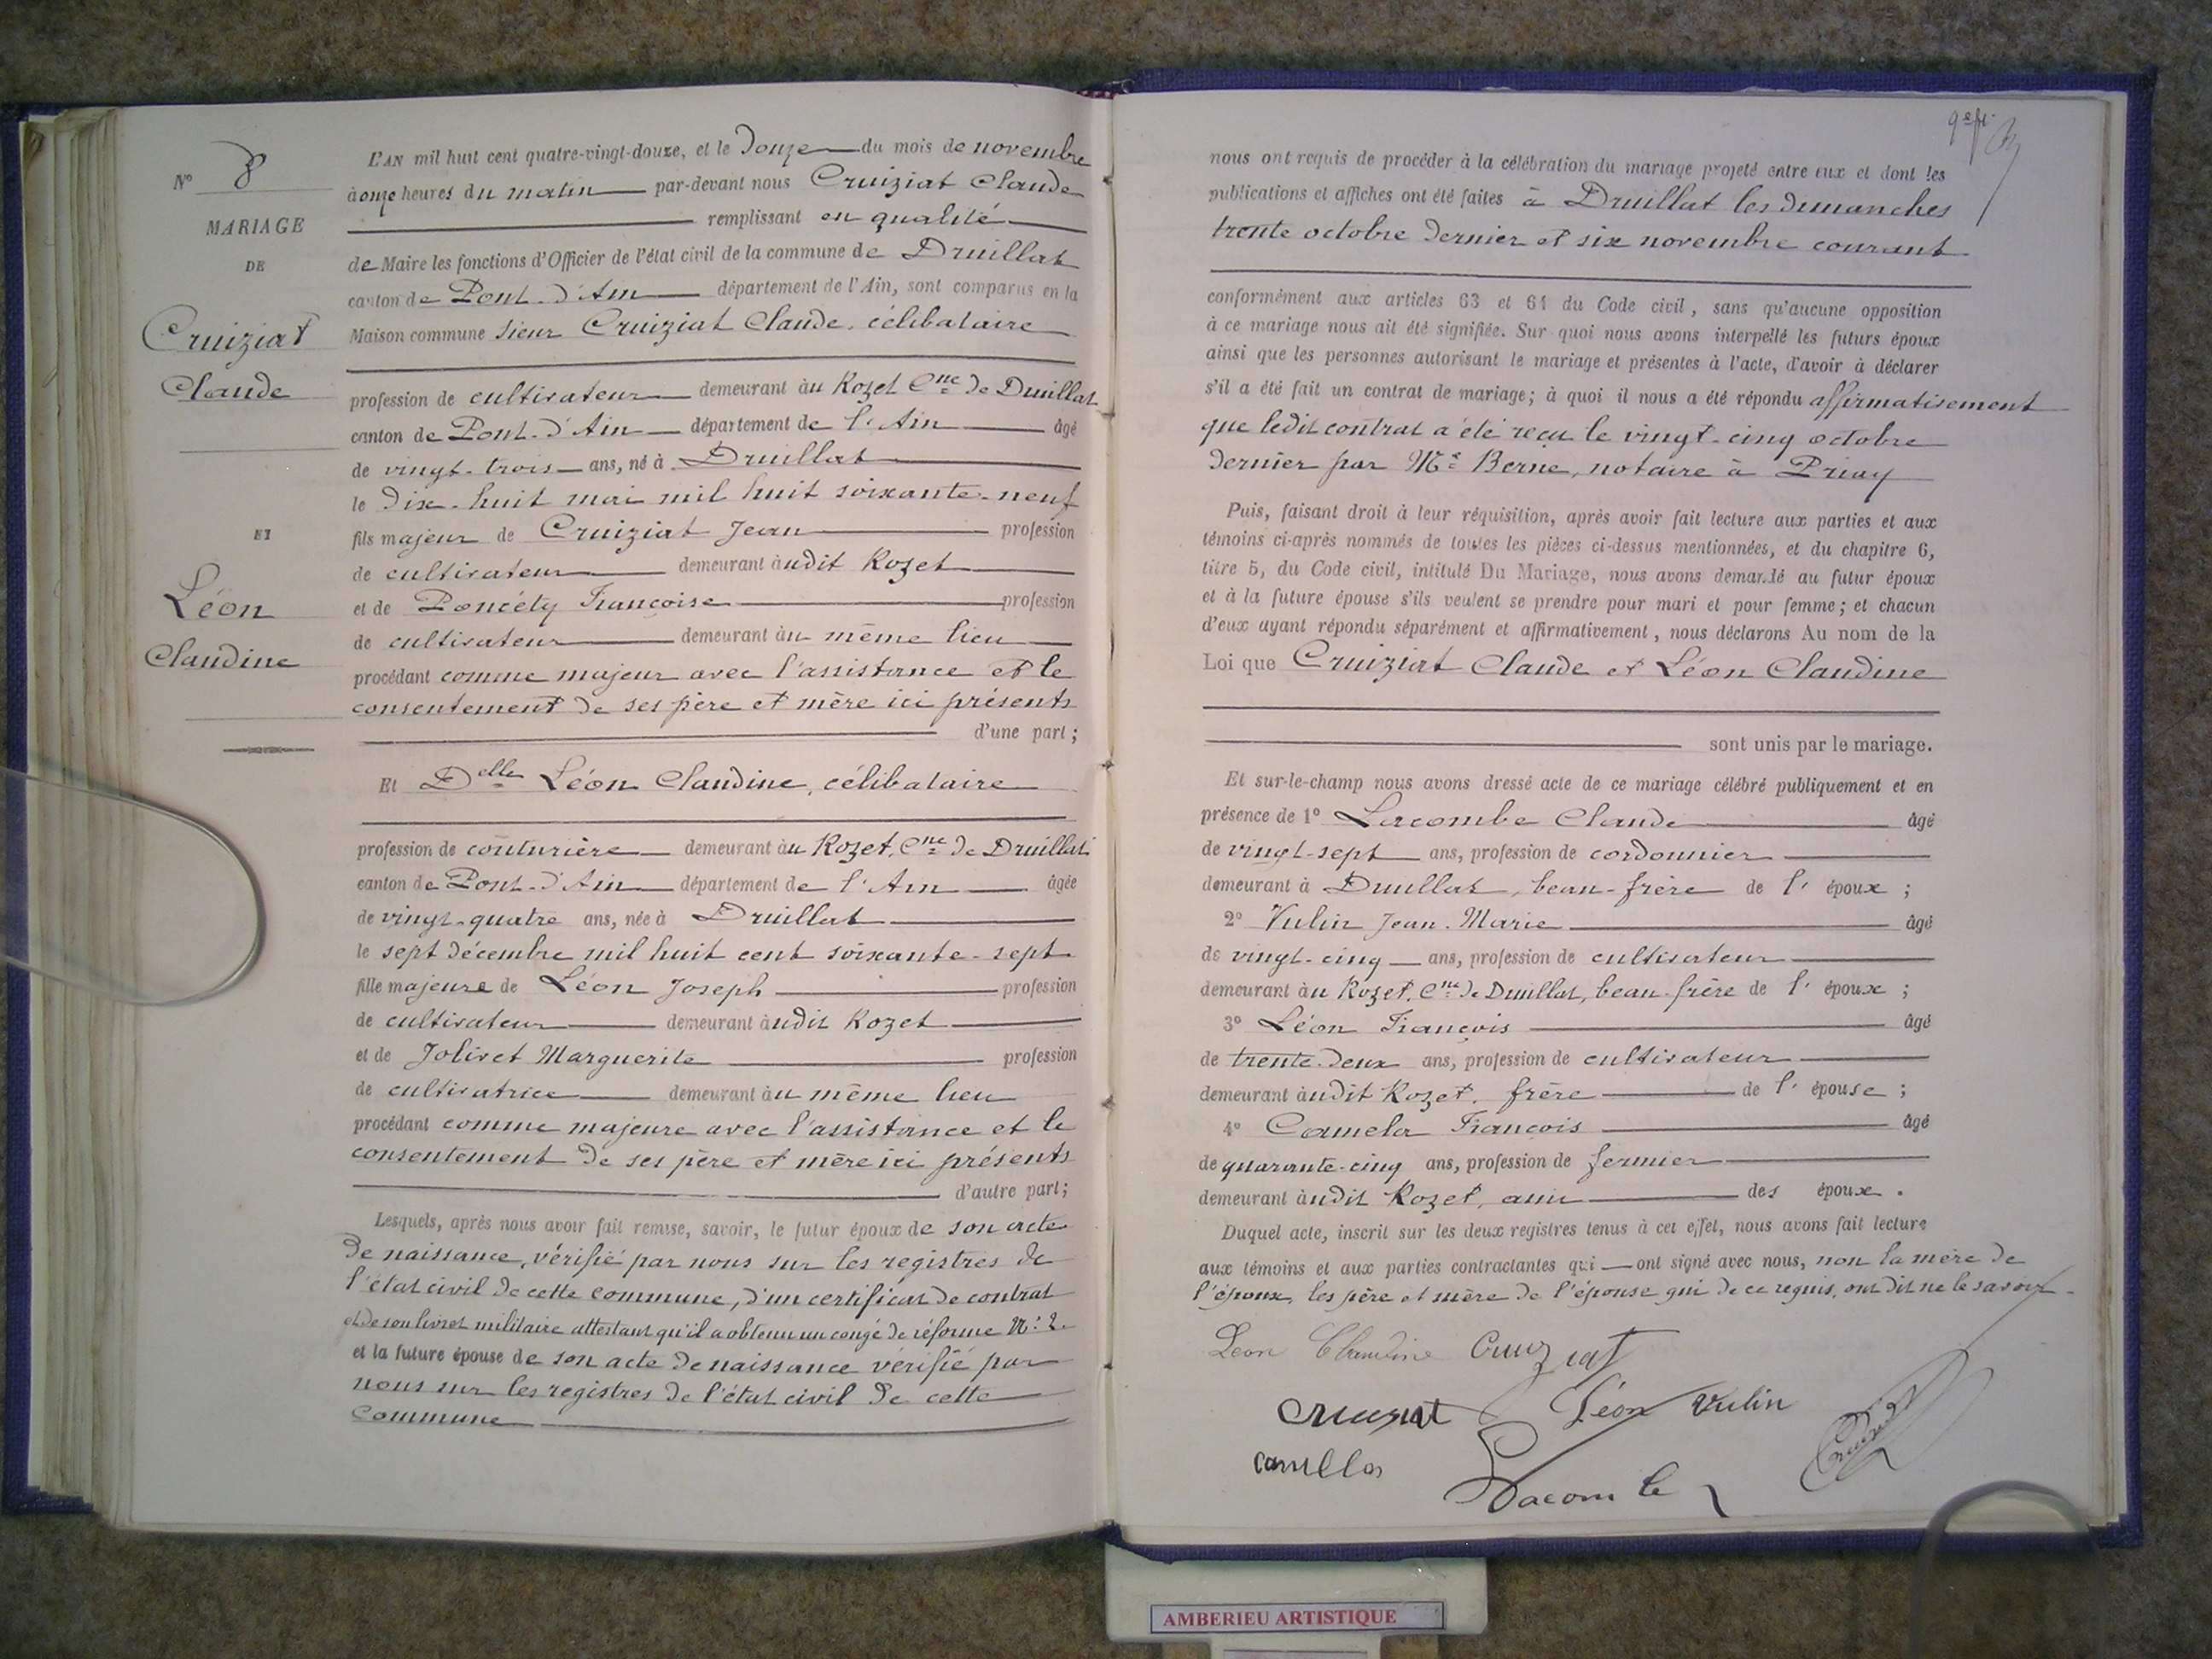 N° 8
MARIAGE
DE
Cruiziat
Claude
ET
Léon
Claudine
L'AN mil huit cent quatre-vingt-douze, et le Douze du mois de novembre
à onze heures du matin par-devant nous Cruiziat Claude
remplissant en qualité
de Maire les fonctions d'Officier de l'état civil de la commune de Druillat
canton de Pont-d'Ain département de l'Ain, sont comparus en la
Maison commune sieur Cruiziat Claude, célibataire
profession de cultivateur demeurant au Rozet Cne de Druillat
canton de Pont-d'Ain département de l'Ain âgé
de vingt-trois ans, né à Druillat
le Dix-huit mai mil huit soixante-neuf
fils majeur de Cruiziat Jean profession
de cultivateur demeurant audit Rozet
et de Poncéty Françoise profession
de cultivateur demeurant au même lieu
procédant comme majeur avec l'assistance et le
consentement de ses père et mère ici présents
d'une part;
Et Delle Léon Claudine, célibataire
profession de couturière demeurant au Rozet, Cne de Druillat
canton de Pont-d'Ain département de l'Ain âgée
de vingt-quatre ans, née à Druillat
le sept décembre mil huit cent soixante-sept
fille majeure de Léon Joseph profession
de cultivateur demeurant audit Rozet
et de Jolivet Marguerite profession
de cultivatrice demeurant au même lieu
procédant comme majeure avec l'assistance et le
consentement de ses père et mère ici présents
d'autre part;
Lesquels, après nous avoir fait remise, savoir, le futur époux de son acte
de naissance, vérifié par nous sur les registres de
l'état civil de cette commune, d'un certificat de contrat
et de son livret militaire attestant qu'il a obtenu un congé de réforme N° 2
et la future épouse de son acte de naissance vérifié par
nous sur les registres de l'état civil de cette
commune
nous ont requis de procéder à la célébration du mariage projeté entre eux et dont les
publications et affiches ont été faites à Druillat les dimanches
trente octobre dernier et six novembre courant
conformément aux articles 63 et 64 du Code civil, sans qu'aucune opposition
à ce mariage nous ait été signifiée. Sur quoi nous avons interpellé les futurs époux
ainsi que les personnes autorisant le mariage et présentes à l'acte, d'avoir à déclarer
s'il a été fait un contrat de mariage; à quoi il nous a été répondu affirmativement
que ledit contrat a été reçu le vingt-cinq octobre
dernier par Me Berne, notaire à Priay
Puis, faisant droit à leur réquisition, après avoir fait lecture aux parties et aux
témoins ci-après nommés de toutes les pièces ci-dessus mentionnées, et du chapitre 6,
titre 5, du Code civil, intitulé Du Mariage, nous avons demandé au futur époux
et à la future épouse s'ils veulent se prendre pour mari et pour femme; et chacun
d'eux ayant répondu séparément et affirmativement, nous déclarons Au nom de la
Loi que Cruiziat Claude et Léon Claudine
sont unis par le mariage.
Et sur-le-champ nous avons dressé acte de ce mariage célébré publiquement et en
présence de 1° Lacombe Claude âgé
de vingt-sept ans, profession de cordonnier
demeurant à Druillat, beau-frère de l'époux;
2° Vulin Jean-Marie âgé
de vingt-cinq ans, profession de cultivateur
demeurant au Rozet, Cne de Druillat, beau-frère de l'époux;
3° Léon François âgé
de trente-deux ans, profession de cultivateur
demeurant audit Rozet, frère de l'épouse;
4° Camela François âgé
de quarante-cinq ans, profession de fermier
demeurant audit Rozet, ami des époux.
Duquel acte, inscrit sur les deux registres tenus à cet effet, nous avons fait lecture
aux témoins et aux parties contractantes qui ont signé avec nous, non la mère de
l'époux, les père et mère de l'épouse qui de ce requis, ont dit ne le savoir.
Leon Claudine Cruiziat
Cruiziat Léon Vulin
Lacombe
AMBERIEU ARTISTIQUE